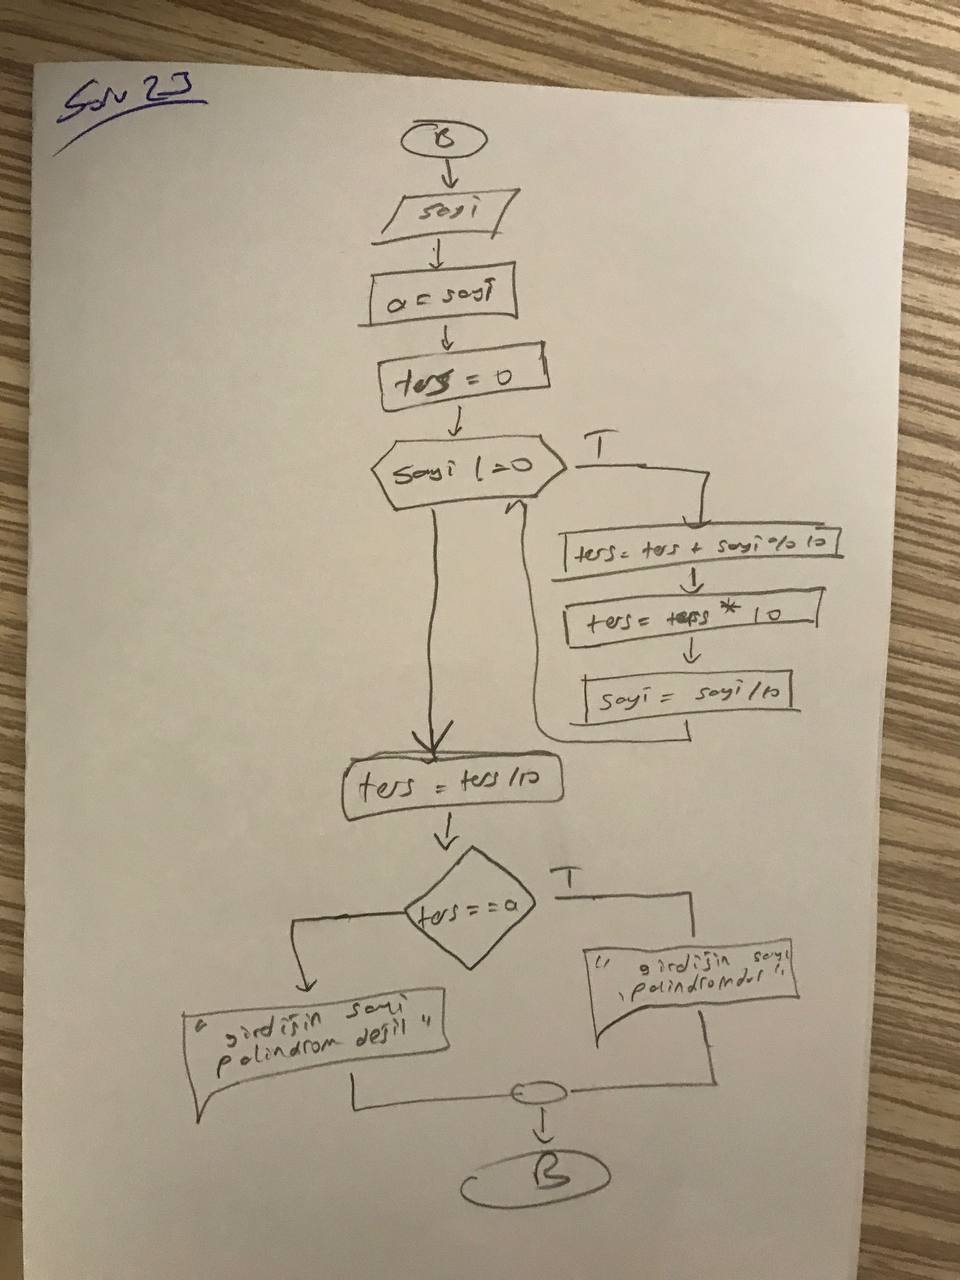 Soru 23
B
sayi
a = sayi
ters = 0
sayi != 0
T
ters = ters + sayi % 10
ters = ters * 10
sayi = sayi / 10
ters = ters / 10
ters == a
T
" girdiğin sayı
palindromdur "
" girdiğin sayi
palindrom değil "
B